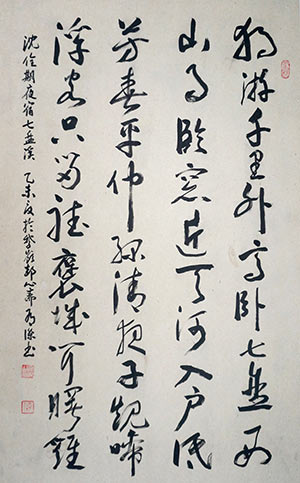 独游千里外高卧七盘西
山月临窗近天河入户低
芳春平仲绿清夜子规啼
浮客空留听褒城闻曙鸡
沈佺期夜宿七盘溪 乙未夏于